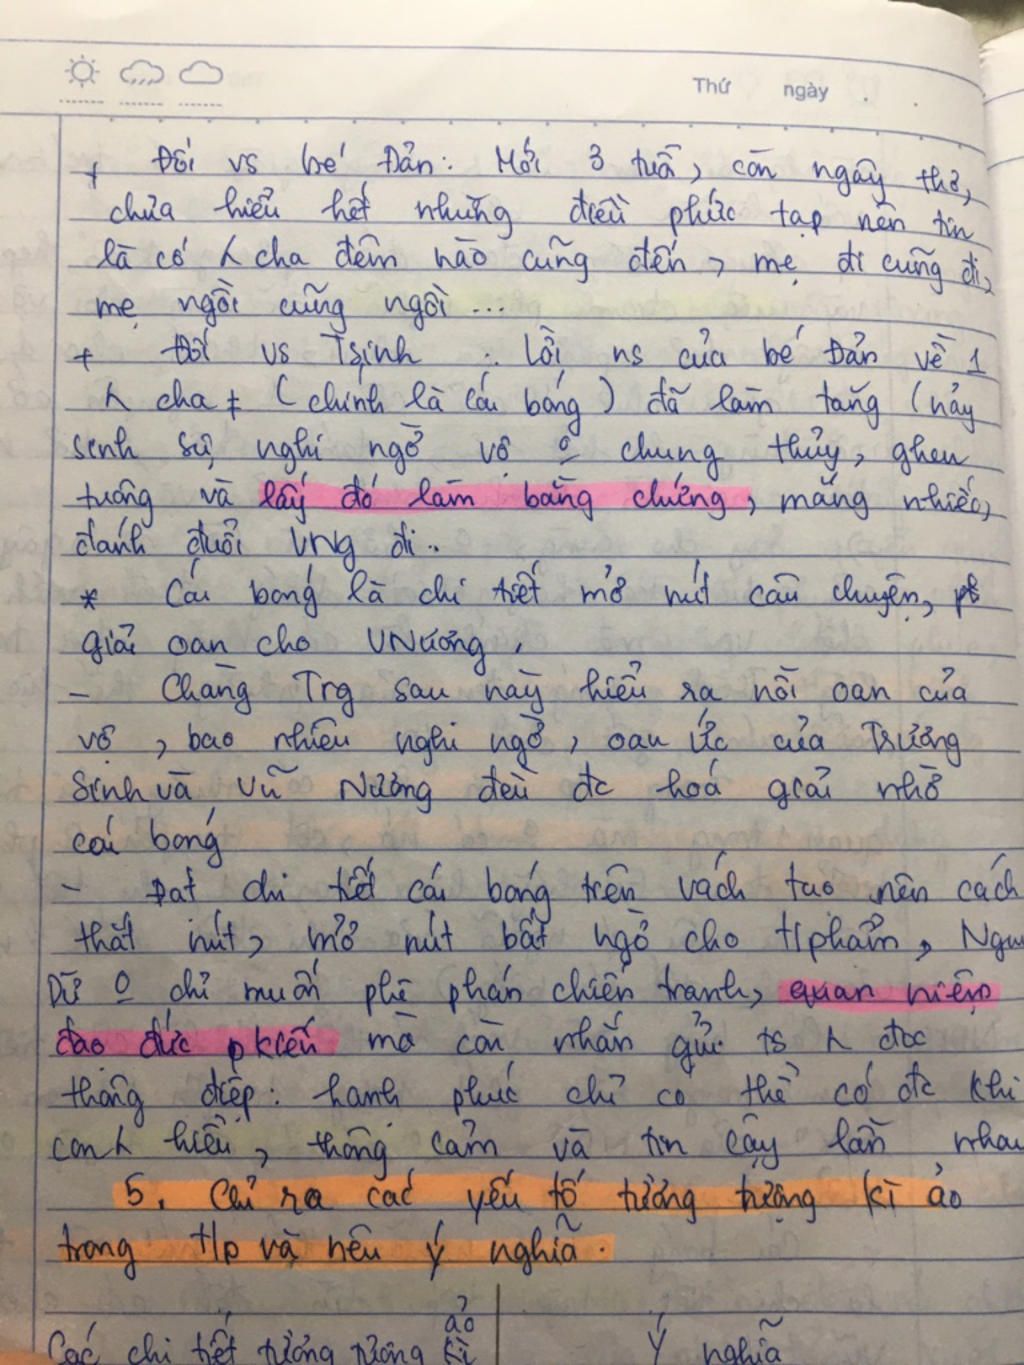 Thứ ngày
+ Đối vs bé Đản: Mới 3 tuổi, còn ngây thơ,
chưa hiểu hết những điều phức tạp nên tin
là có λ cha đêm nào cũng đến, mẹ đi cũng đi,
mẹ ngồi cũng ngồi ...
+ Đối vs Tsinh: Lời ns của bé Đản về 1
λ cha ≠ (chính là cái bóng) đã làm tăng (nảy
sinh sự nghi ngờ vợ o chung thủy, ghen
tuông và lấy đó làm bằng chứng, mắng nhiếc,
đánh đuổi VNg đi.
* Cái bóng là chi tiết mở nút câu chuyện,
giải oan cho VNương,
- Chàng Trg sau này hiểu ra nỗi oan của
vợ, bao nhiêu nghi ngờ, oan ức của Trương
Sinh và Vũ Nương đều đc hoá giải nhờ
cái bóng
- Đặt chi tiết cái bóng trên vách tạo nên cách
thắt nút, mở nút bất ngờ cho t/phẩm,
Dữ o chỉ muốn phê phán chiến tranh, quan niệm
đạo đức pkiến mà còn nhắn gửi ts λ đọc
thông điệp: hạnh phúc chỉ có thể có đc khi
con λ hiểu, thông cảm và tin cậy lẫn nhau
5. Chỉ ra các yếu tố tưởng tượng kì ảo
trong t/p và nêu ý nghĩa.
Các chi tiết tưởng tượng kì ảo Ý nghĩa